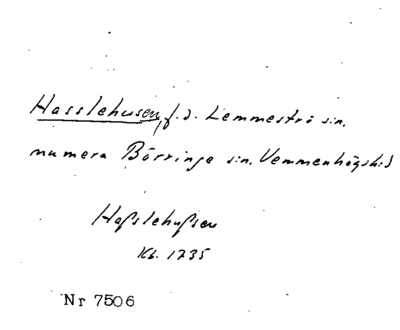 Hasslehusen, f.d. Lemmeströ sn.
numera Börringe sn. Vemmenhögs hd
Haßlehußen
Kb. 1735
Nr 7506